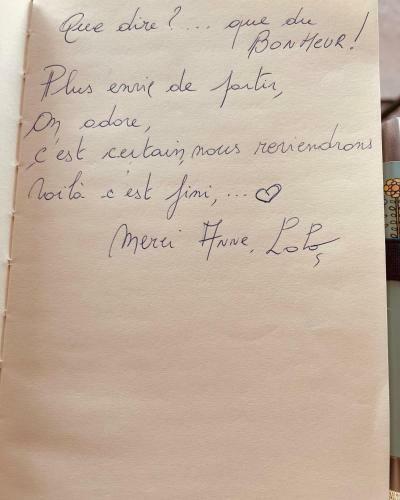 Que dire ?... que du
BONHEUR !
Plus envie de partir,
On adore,
c'est certain, nous reviendrons
Voilà c'est fini, ... ♡
Merci Anne.